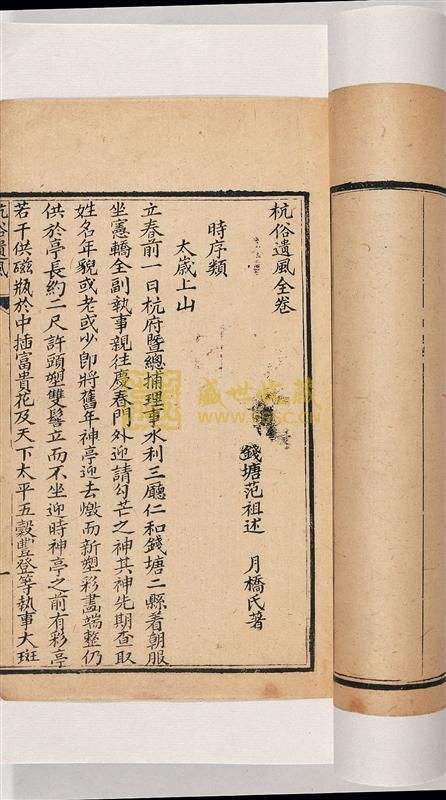 杭俗遺風全卷
錢塘范祖述 月橋氏著
時序類
太歲上山
立春前一日杭府暨總捕理事水利三廳仁和錢塘二縣着朝服
坐憲轎全副執事親往慶春門外迎請勾芒之神其神先期查取
姓名年貌或老或少即將舊年神亭迎去燬而新塑彩畫端整仍
供於亭長約二尺許頭塑雙髻立而不坐迎時神亭之前有彩亭
若干供磁瓶於中插富貴花及天下太平五穀豐登等執事大班
杭俗遺風
一
盛世收藏